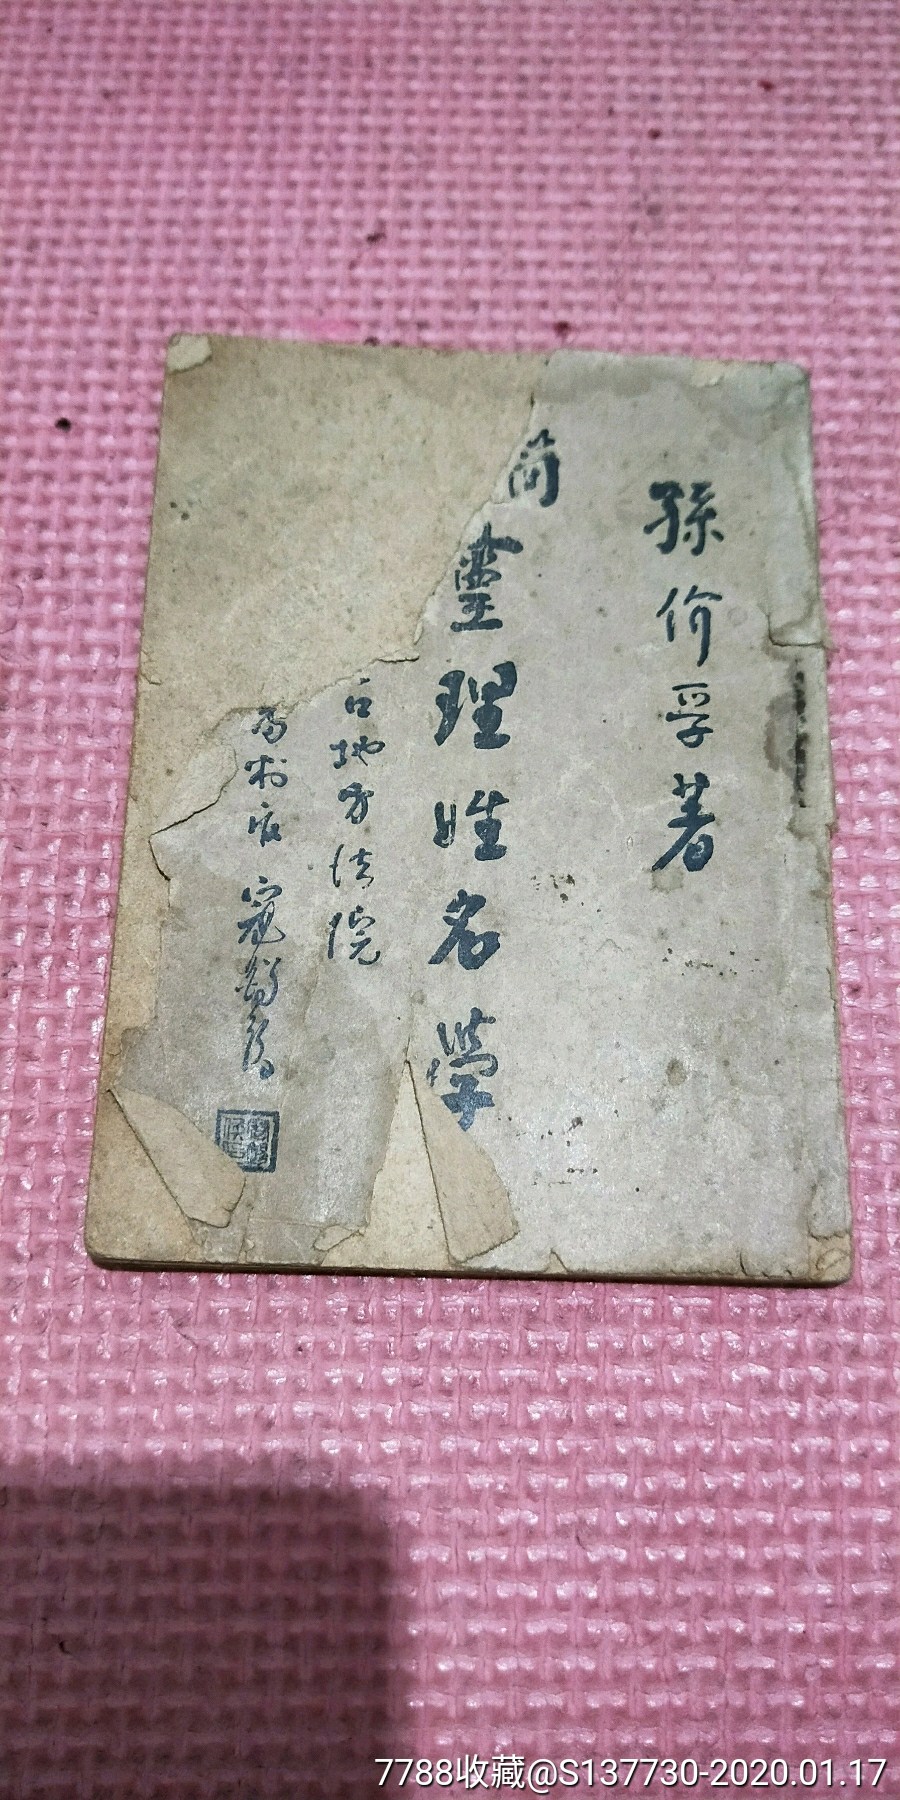 孫价孚著
靈理姓名學
口地方法院
判官寇
7788收藏@S137730-2020.01.17